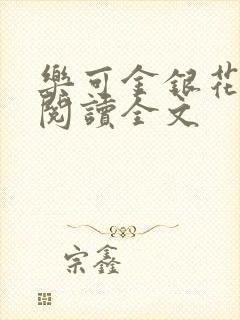 樂可金銀花
閱讀全文
宗鑫